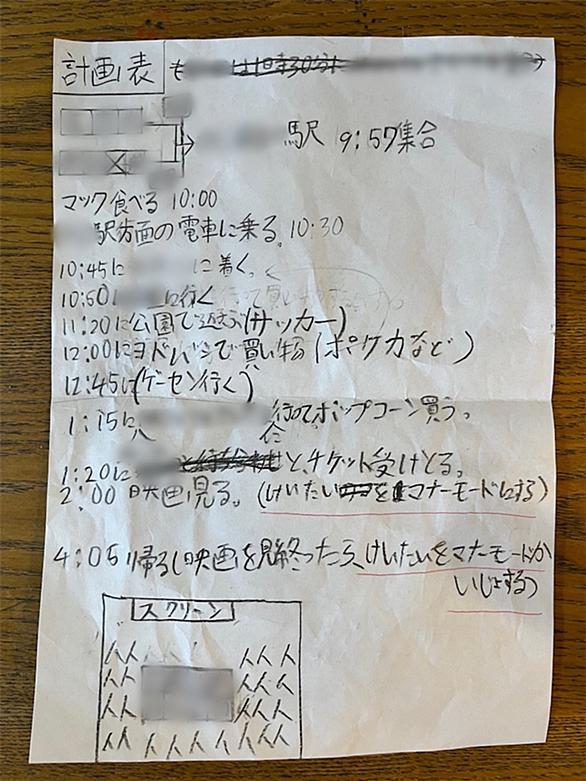 計画表
は10時30分
駅 9:57集合
マック食べる 10:00
駅方面の電車に乗る。10:30
10:45に に着く。
10:50 に行く
11:20に公園で遊ぶ(サッカー)
12:00にヨドバシで買い物(ポケカなど)
12:45に(ゲーセン行く)
1:15に 行ってポップコーン買う。
1:20に と、チケット受けとる。
2:00 映画見る。(けいたいをマナーモードにする)
4:05 帰る(映画を見終ったら、けいたいをマナーモードか
いじょする)
スクリーン